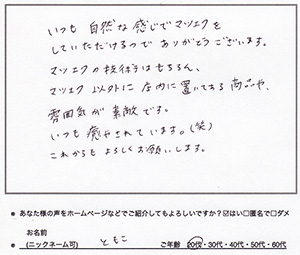 いつも自然な感じでマツエクを
していただけるので ありがとうございます。
マツエクの技術はもちろん、
マツエク以外に店内に置いてある商品や、
雰囲気が素敵です。
いつも癒やされています。(笑)
これからも よろしくお願いします。
● あなた様の声をホームページなどでご紹介してもよろしいですか？☑はい□匿名で□ダメ
● お名前
(ニックネーム可) ともこ ご年齢 20代・30代・40代・50代・60代